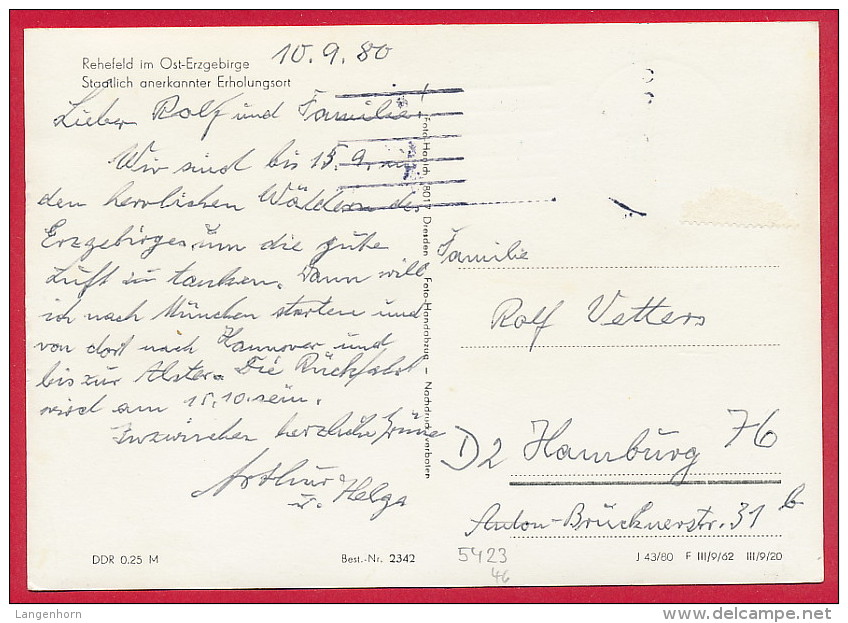 Rehefeld im Ost-Erzgebirge
Staatlich anerkannter Erholungsort
10.9.80
Lieber Rolf und Familie!
Wir sind bis 15.9. in
den herrlichen Wäldern des
Erzgebirges, um die gute
Luft zu tanken. Dann will
ich nach München starten und
von dort nach Hannover und
bis zur Alster. Die Rückfahrt
wird am 15.10. sein.
Inzwischen herzliche Grüße
Arthur
u. Helga
Foto-Handabzug — Nachdruck verboten
Familie
Rolf Vetters
D2 Hamburg 76
Anton-Brücknerstr. 31 b
DDR 0.25 M
Best.-Nr. 2342
5423
46
J 43/80 F III/9/62 III/9/20
Langenhorn
delcampe.net